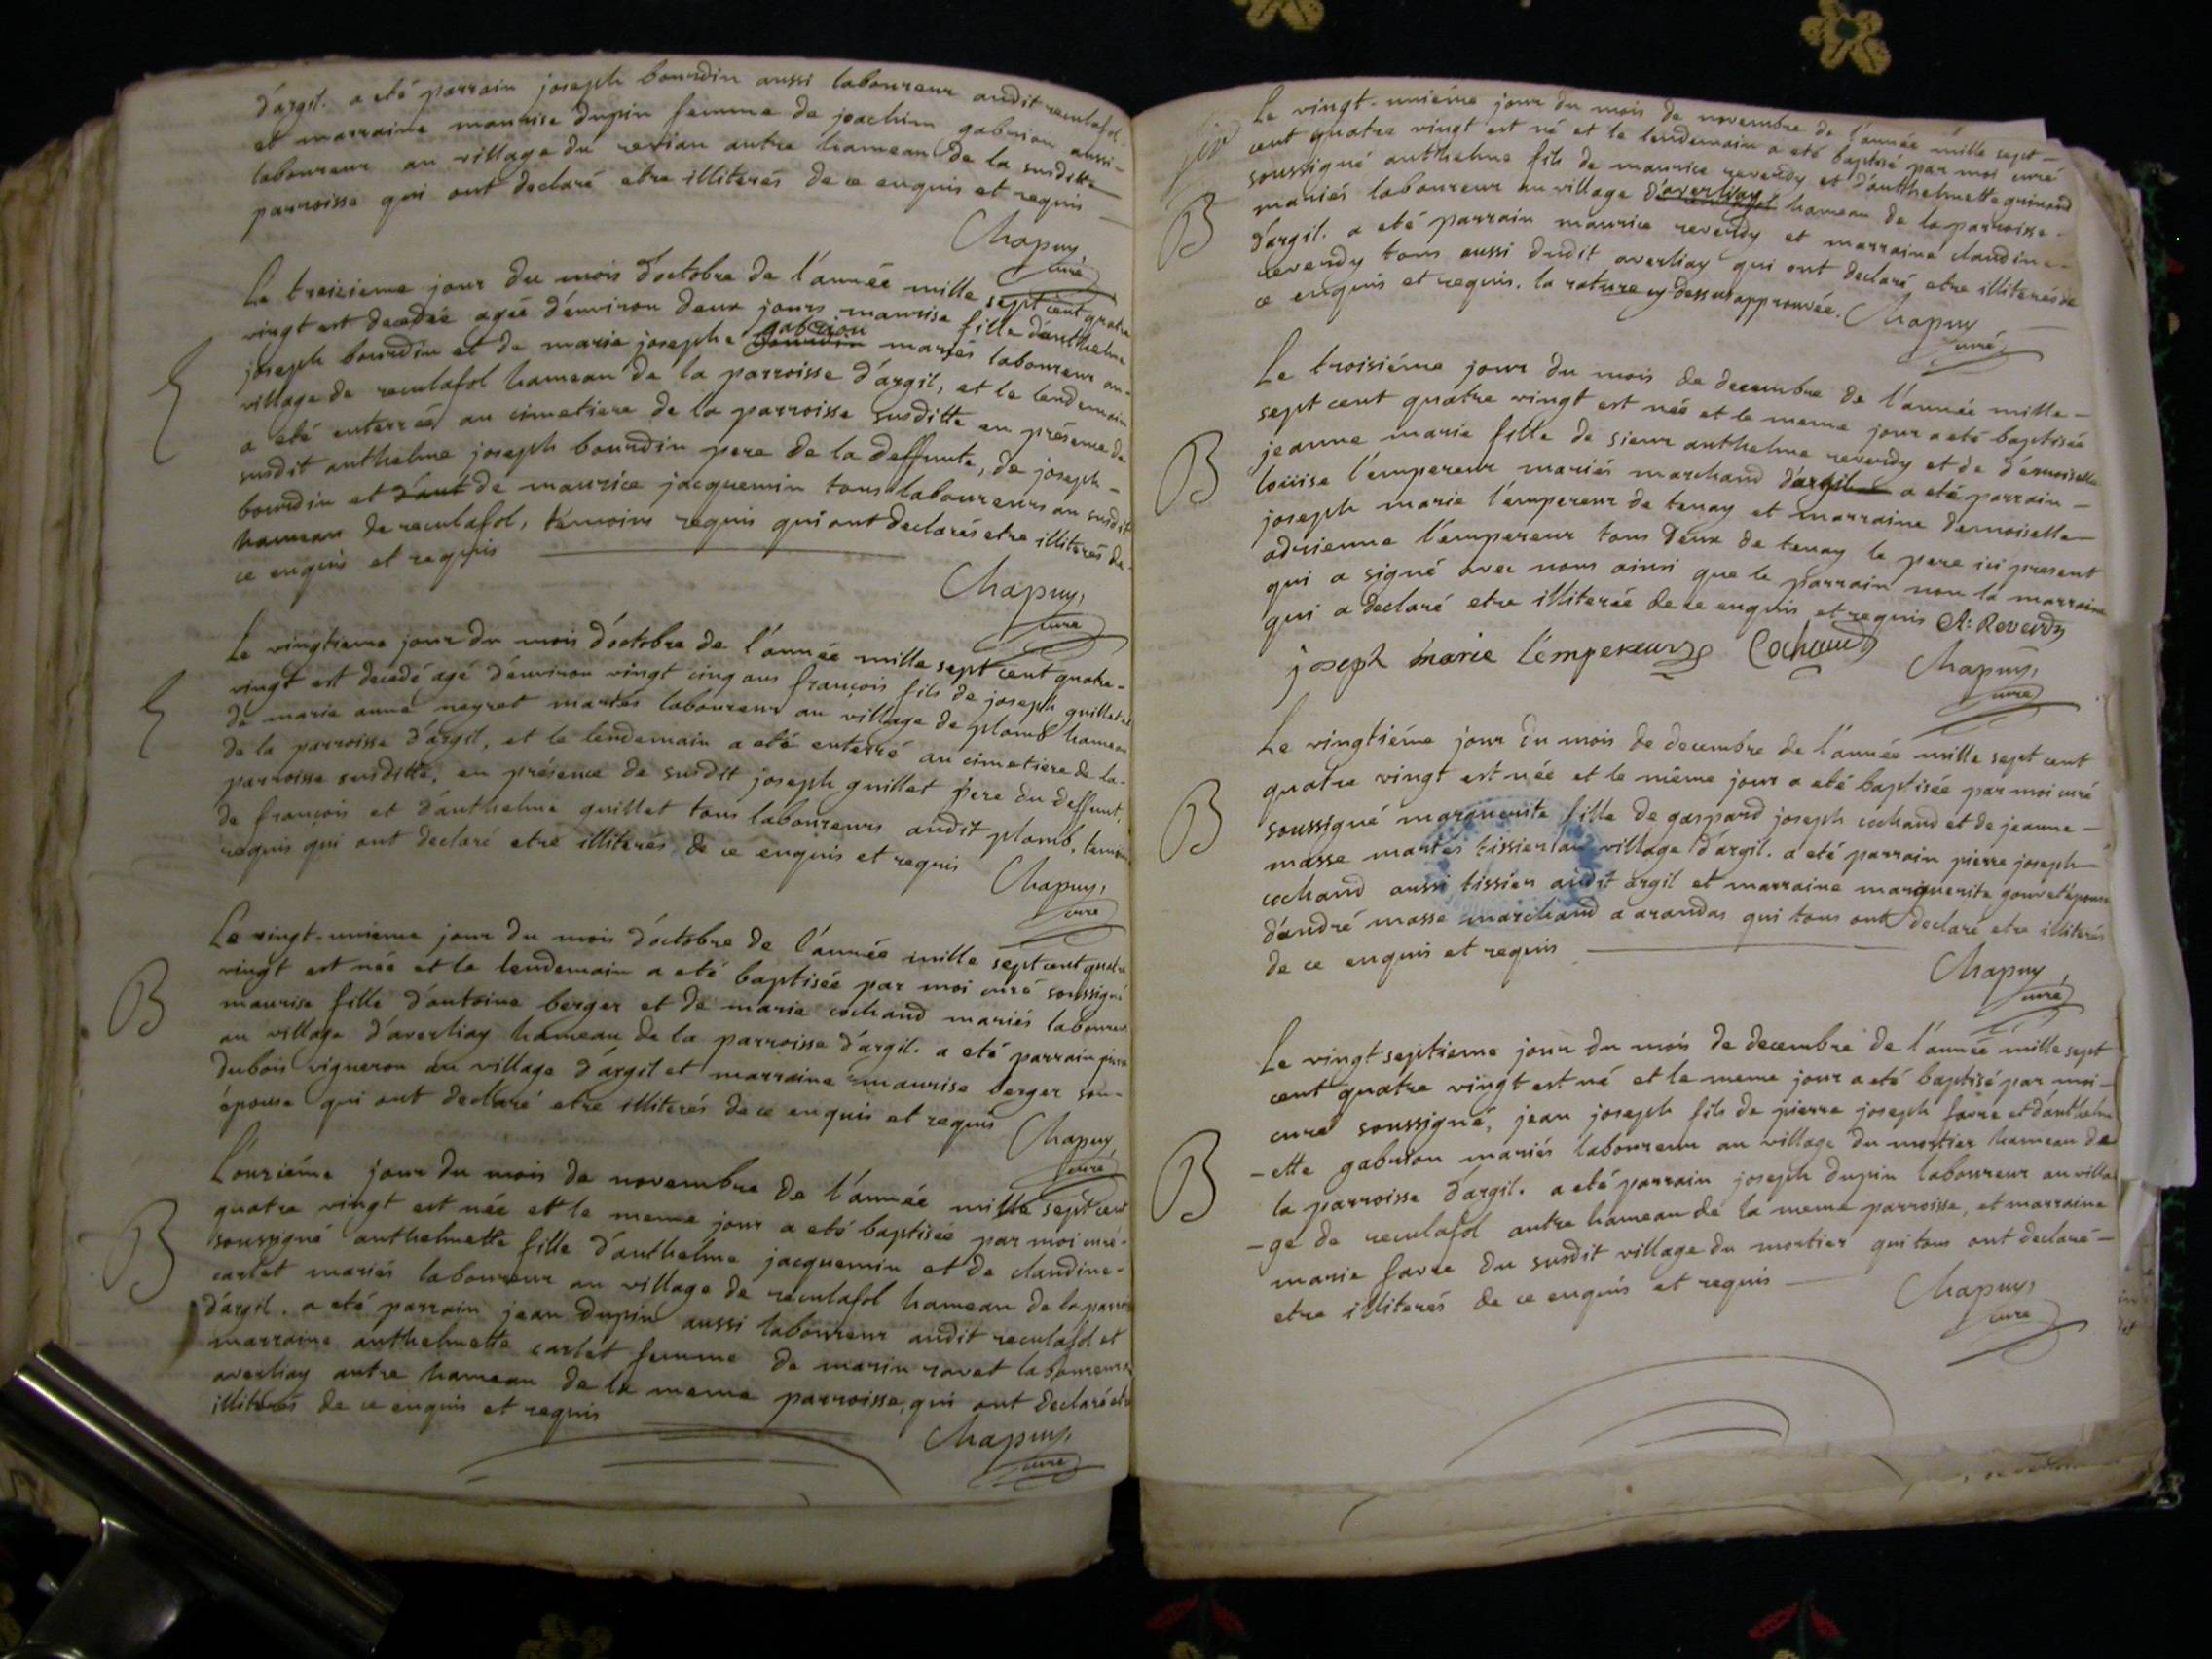 d'argil. a eté parrain joseph bourdin aussi laboureur audit reculafol
et marraine maurise dupin femme de joachim gabrion aussi-
laboureur au village du revian autre hameau de la susditte
parroisse qui ont declaré etre illiterés de ce enquis et requis
Chapuy
curé
Le treizieme jour du mois d'octobre de l'année mille sept cent quatre
vingt est decedée agée d'environ deux jours maurise fille d'anthelme
gabrion
joseph bourdin et de marie josephe bourdin mariés laboureur au-
village de reculafol hameau de la parroisse d'argil, et le lendemain
a eté enterrée au cimetiere de la parroisse susditte en présence de
susdit anthelme joseph bourdin pere de la deffunte, de joseph-
bourdin et d'ant de maurice jacquemin tous laboureurs au susdit
hameau de reculafol, témoins requis qui ont declarés etre illiterés de-
ce enquis et requis
Chapuy,
curé
Le vingtieme jour du mois d'octobre de l'année mille sept cent quatre-
vingt est decedé agé d'environ vingt cinq ans françois fils de joseph guillet et
de marie anne neyret mariés laboureur au village de plomb hameau
de la parroisse d'argil, et le lendemain a eté enterré au cimetiere de la-
parroisse susditte, en présence de susdit joseph guillet pere du deffunt,
de françois et d'anthelme guillet tous laboureurs audit plomb, temoins
requis qui ont declaré etre illiterés de ce enquis et requis
Chapuy,
curé
B
Le vingt-unieme jour du mois d'octobre de l'année mille sept cent quatre
vingt est née et le lendemain a eté baptisée par moi curé soussigné
maurise fille d'antoine berger et de marie cochand mariés laboureur
au village d'averliay hameau de la parroisse d'argil. a eté parrain pierre
dubois vigneron au village d'argil et marraine maurise berger son-
épouse qui ont declaré etre illiterés de ce enquis et requis
Chapuy
curé
B
L'onziéme jour du mois de novembre de l'année mille sept cent
quatre vingt est née et le meme jour a eté baptisée par moi curé-
soussigné anthelmette fille d'anthelme jacquemin et de claudine-
carlet mariés laboureur au village de reculafol hameau de la parroisse
d'argil. a eté parrain jean dupin aussi laboureur audit reculafol et
marraine anthelmette carlet femme de marin ravet laboureur a
averliay autre hameau de la meme parroisse, qui ont declaré etre
illiterés de ce enquis et requis
Chapuy,
curé
Le vingt-uniéme jour du mois de novembre de l'année mille sept-
cent quatre vingt est né et le lendemain a eté baptisé par moi curé
B
soussigné anthelme fils de maurice reverdy et d'anthelmette guinand
mariés laboureur au village d'averliay hameau de la parroisse-
d'argil. a eté parrain maurice reverdy et marraine claudine-
reverdy tous aussi dudit averliay qui ont declaré etre illiterés de
ce enquis et requis. la rature cy dessus approuvée.
Chapuy
curé
B
Le troisiéme jour du mois de decembre de l'année mille-
sept cent quatre vingt est née et le meme jour a eté baptisée
jeanne marie fille de sieur anthelme reverdy et de démoiselle
loüise l'empereur mariés marchand d'argil a eté parrain-
joseph marie l'empereur de tenay et marraine demoiselle-
adrienne l'empereur tous deux de tenay le pere ici present
qui a signé avec nous ainsi que le parrain non la marraine
qui a declaré etre illiterée de ce enquis et requis A: Reverdy
joseph marie l'empereur Cochaud
Chapuy,
curé
B
Le vingtiéme jour du mois de decembre de l'année mille sept cent
quatre vingt est née et le même jour a eté baptisée par moi curé
soussigné marguerite fille de gaspard joseph cochand et de jeanne-
masse mariés tissier au village d'argil. a eté parrain pierre joseph-
cochand aussi tissier audit argil et marraine marguerite gouvet épouse
d'andré masse marchand a arandas qui tous ont declaré etre illiterés
de ce enquis et requis
Chapuy,
curé
B
Le vingt septieme jour du mois de decembre de l'année mille sept
cent quatre vingt est né et le meme jour a eté baptisé par moi-
curé soussigné, jean joseph fils de pierre joseph favre et d'anthelm
-ette gabrion mariés laboureur au village du mortier hameau de
la parroisse d'argil. a eté parrain joseph dupin laboureur au villa
-ge de reculafol autre hameau de la meme parroisse, et marraine
marie favre du susdit village du mortier qui tous ont declaré-
etre illiterés de ce enquis et requis
Chapuy,
curé